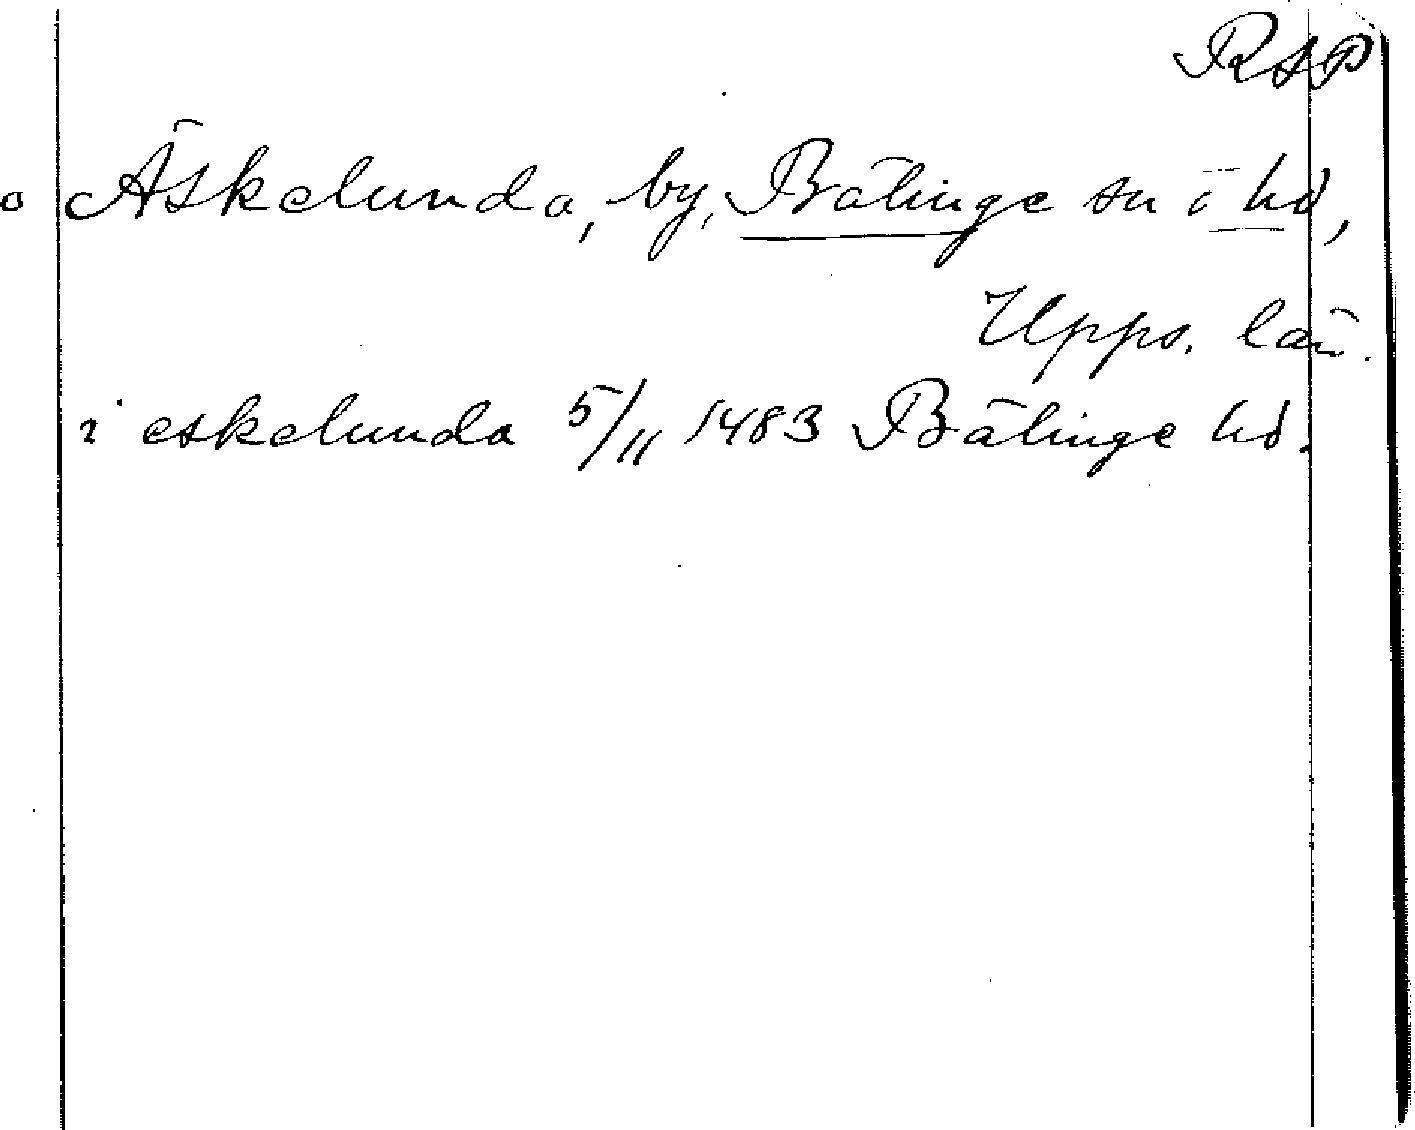 RAP
o Äskelunda, by, Bälinge sn o hd,
Upps. län.
i eskelunda 5/11 1483 Bälinge hd.